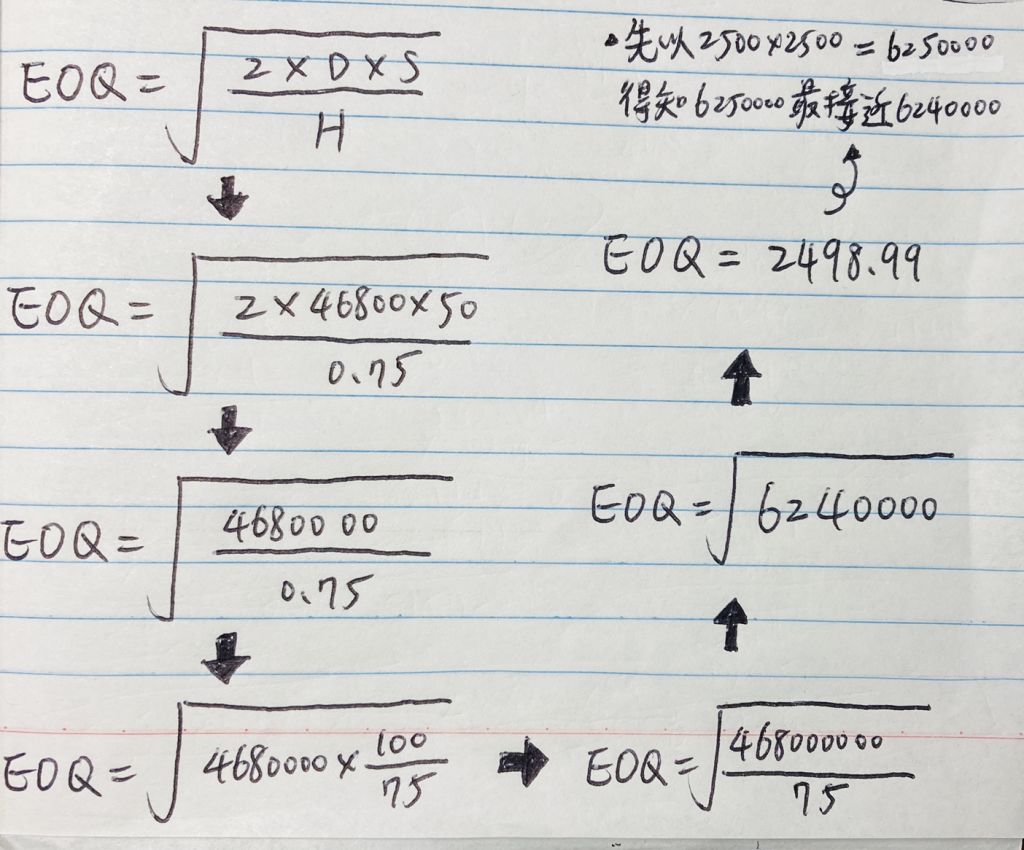 EOQ = √(2×D×S / H)
EOQ = √(2×46800×50 / 0.75)
EOQ = √(4680000 / 0.75)
EOQ = √(4680000 × 100/75)
EOQ = √(468000000 / 75)
EOQ = √6240000
EOQ = 2498.99
・先以2500×2500 = 6250000
得知6250000最接近6240000